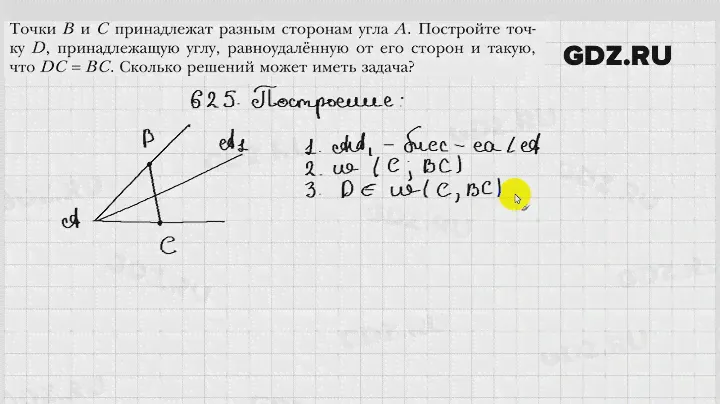 Точки B и C принадлежат разным сторонам угла A. Постройте точ-
ку D, принадлежащую углу, равноудалённую от его сторон и такую,
что DC = BC. Сколько решений может иметь задача?
GDZ.RU
625. Построение:
B
A1
A
C
1. AA₁ - бисс-са ∠A
2. w (C; BC)
3. D ∈ w (C, BC)